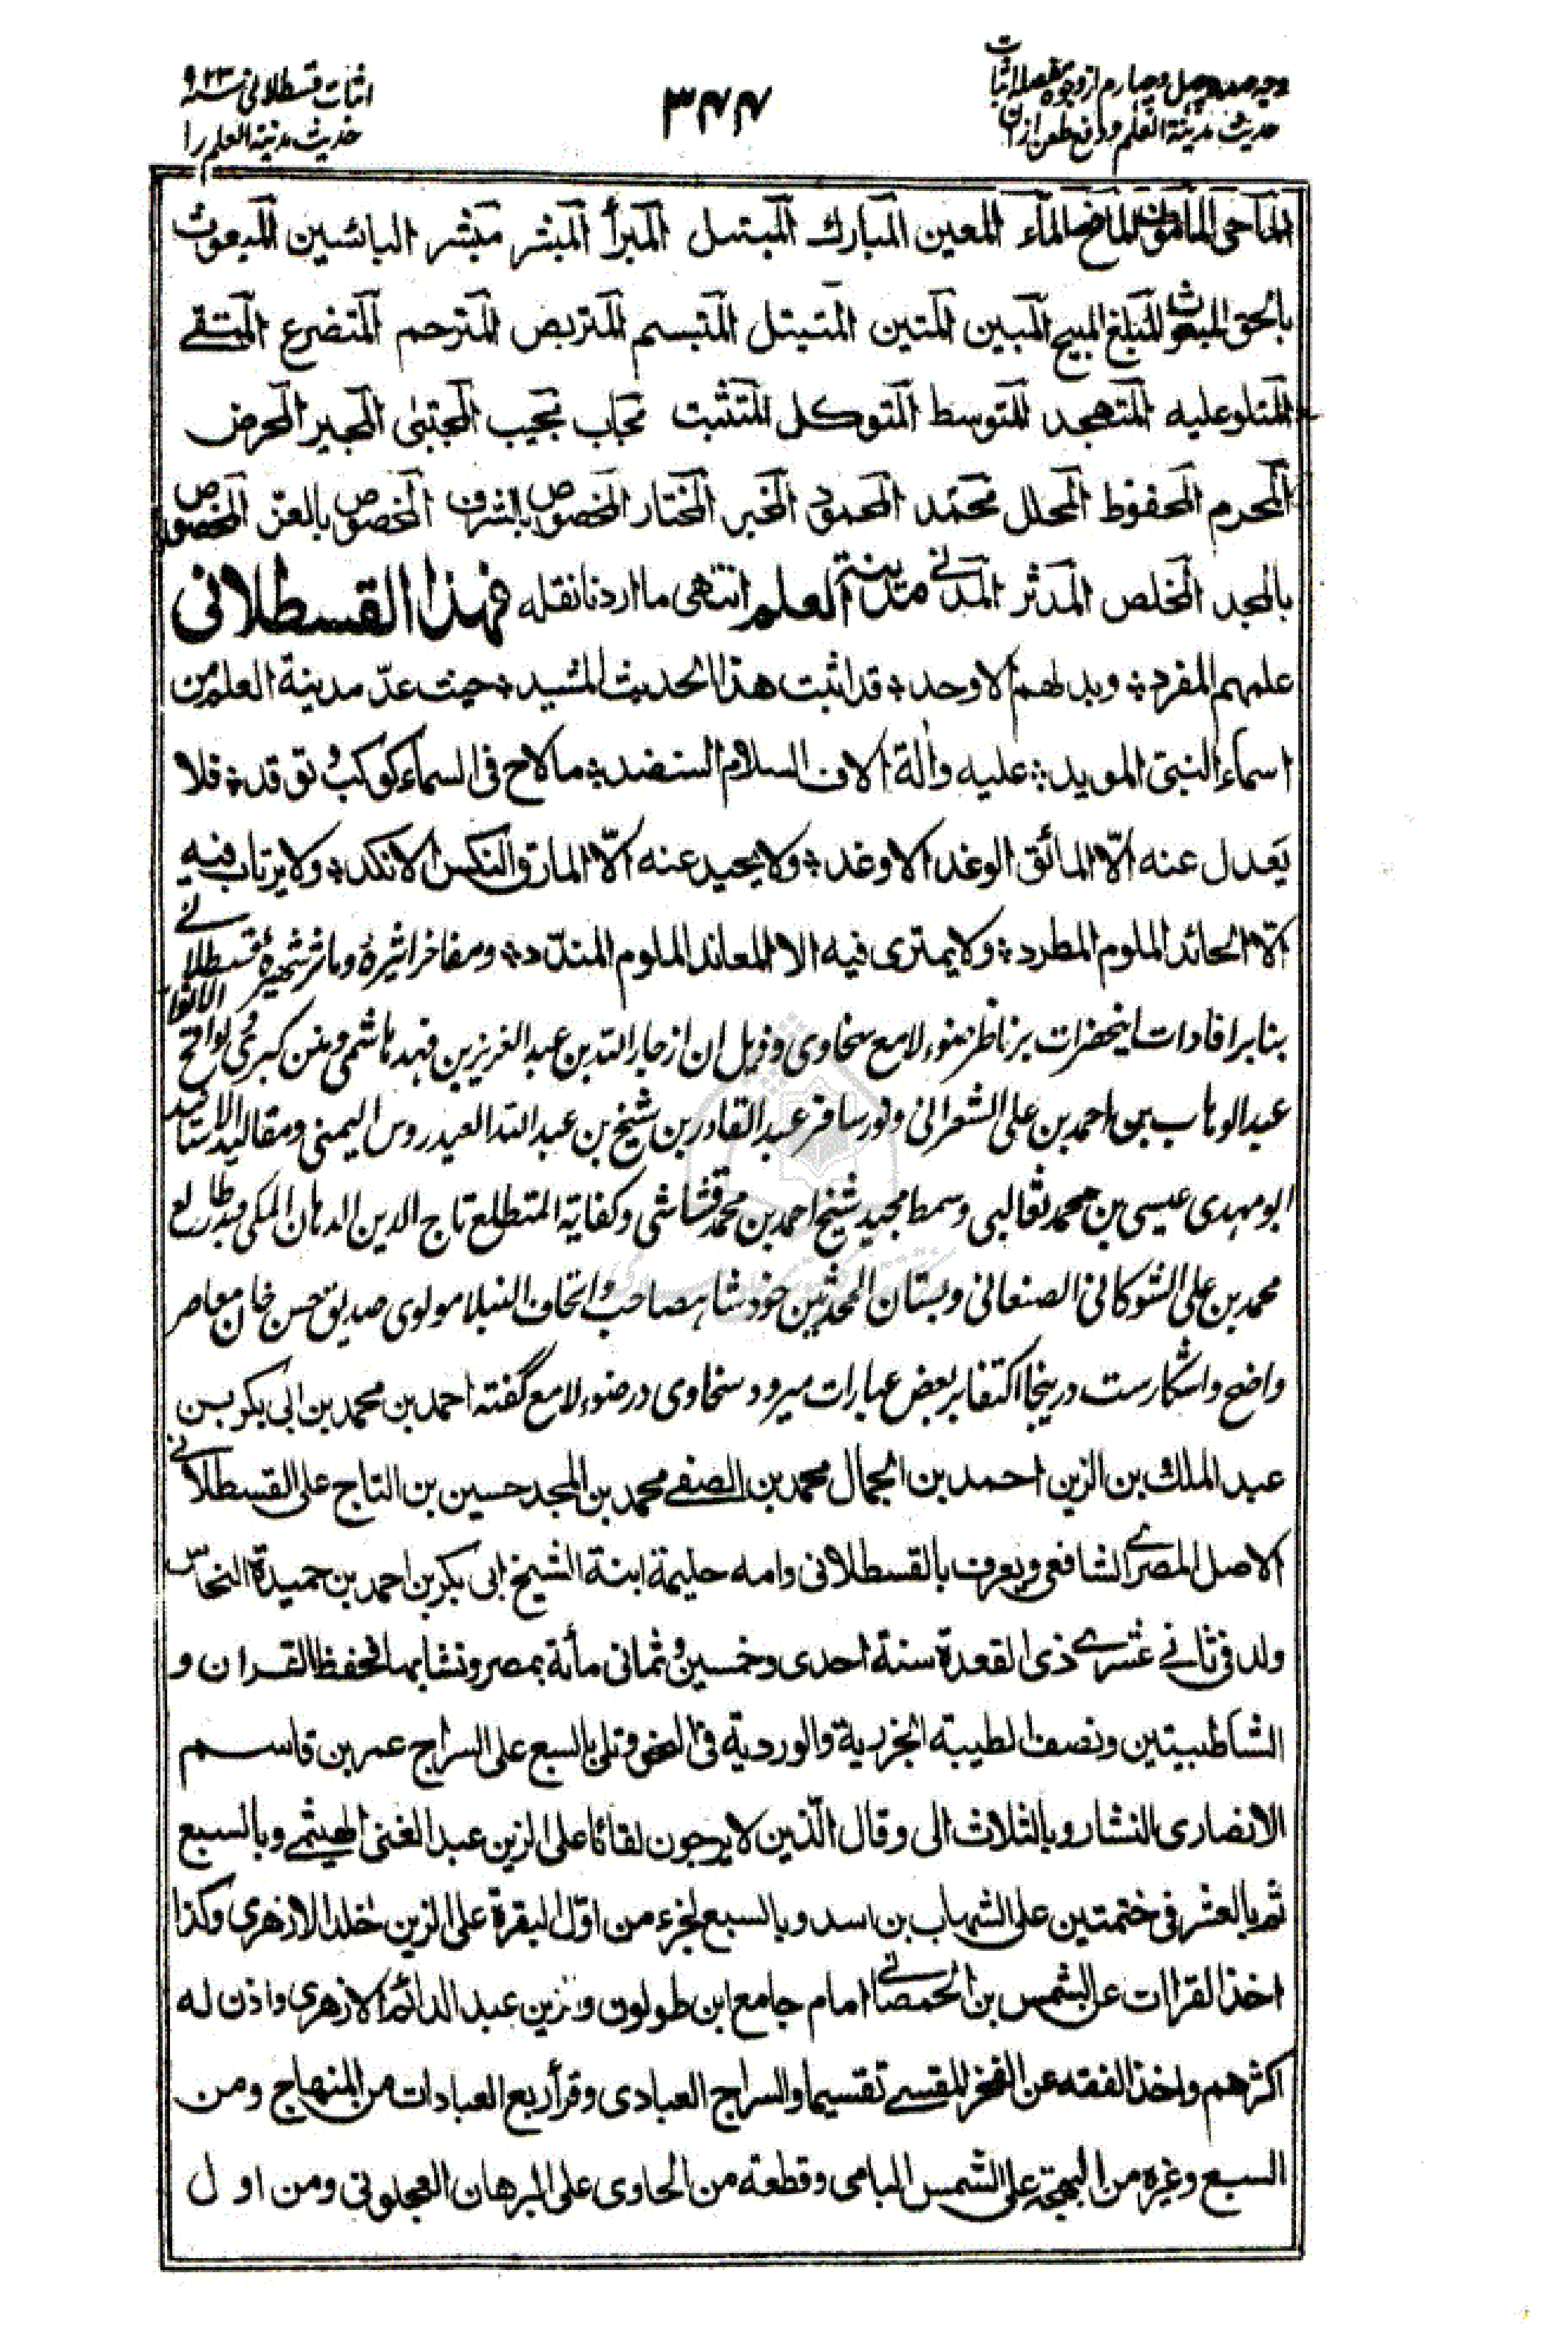 وجه صد و چهل و چهارم از وجوه مفصله اثبات
حديث مدينة العلم ودفع طعن ازان
۳۴۴
اثبات قسطلانی سنه ۹۲۳
حديث مدينة العلم را
الماحی المأمون المانح الماء المعين المبارك المبتهل المبرأ المبشر مبشر البائسين المبعوث
بالحق المبعوث المبلغ المبيح المبين المتين المتبتل المتبسم المتربص المترحم المتضرع المتقے
المتلو عليه المتهجد المتوسط المتوكل المتثبت مجاب مجيب المجتبى المجير المحرض
المحرم المحفوظ المحلل محمد المحمود المخبر المختار المخصوص بالشرف المخصوص بالعز المخصوص
بالمجد المخلص المدثر المدنی مدينة العلم انتهى ما اردنا نقله فهذا القسطلانی
علمهم المفرد؛ وبدلهم الاوحد؛ قد اثبت هذا الحديث المشيد؛ حيث عدّ مدينة العلم من
اسماء النبی المويد؛ عليه وآله الاف السلام المنضد؛ ما لاح فی السماء كوكب وتوقد؛ فلا
يعدل عنه الّا المائق الوغد الاوغد؛ ولا يحيد عنه الّا المارق النكس الانكد؛ ولا يرتاب فيه
الّا الحائد الملوم المطرد؛ ولا يمتری فيه الا المعاند الملوم المندّد؛ ومفاخر اثيره ومآثر شهيره قسطلانی
بنابر افادات اينحضرات بر ناظر ضوء لامع سخاوی وذيل ان از جار الله بن عبد العزيز بن فهد هاشمی ومنن كبری لواقح الانوار
عبد الوهاب بن احمد بن علی الشعرانی ونور سافر عبد القادر بن شيخ بن عبد الله العيدروس اليمنی ومقاليد الاسانيد
ابو مهدی عيسی بن محمد ثعالبی وسمط مجيد شيخ احمد بن محمد قشاشی وكفاية المتطلع تاج الدين الدهان المكی وبدر طالع
محمد بن علی الشوكانی الصنعانی وبستان المحدثين خود شاهصاحب واتحاف النبلا مولوی صديق حسن خان معاصر
واضح واشكارست درينجا اكتفا بر بعض عبارات ميرود سخاوی در ضوء لامع گفته احمد بن محمد بن ابی بكر بن
عبد الملك بن الزين احمد بن الجمال محمد بن الصفے محمد بن المجد حسين بن التاج علی القسطلانی
الاصل المصرے الشافعی ويعرف بالقسطلانی وامه حليمة ابنة الشيخ ابی بكر بن احمد بن حميدة النحاس
ولد فی ثانے عشرے ذی القعدة سنة احدی وخمسين وثمانی مأة بمصر ونشا بها فحفظ القران و
الشاطبيتين ونصف الطيبة الجزرية والوردية فی النحو وتلا بالسبع علی السراج عمر بن قاسم
الانصاری النشار وبالثلاث الی وقال الّذين لا يرجون لقائنا علی الزين عبد الغنی الهيثمے وبالسبع
ثم بالعشر فی ختمتين علی الشهاب بن اسد وبالسبع لجزء من اوّل البقرة علی الزين خلد الازهری وكذا
اخذ القراات عن الشمس بن الحمصانے امام جامع ابن طولون وزين عبد الدائم الازهری واذن له
اكثرهم واخذ الفقه عن الفخر المقسے تقسيما والسراج العبادی وقرأ ربع العبادات من المنهاج ومن
السبع وغيره من البهجة علی الشمس البامی وقطعة من الحاوی علی البرهان العجلونی ومن اول